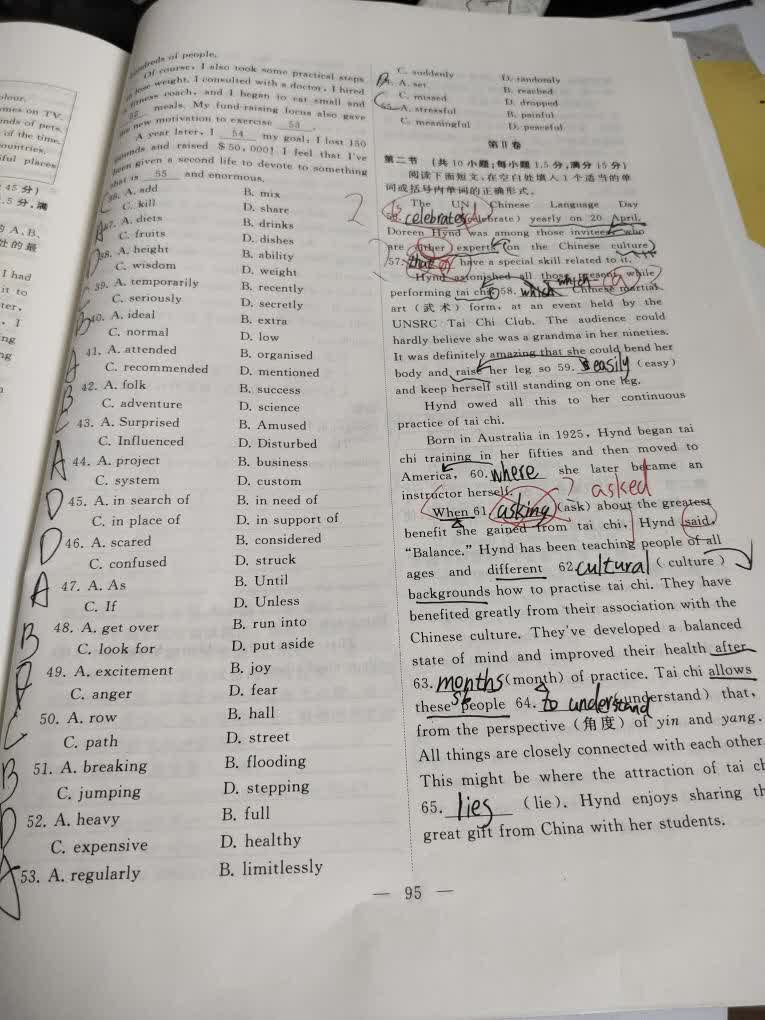 olour.
omes on TV.
nds of pets.
of the time.
ountries.
iful places
45 分)
.5 分,满
的 A、B、
处的最
I had
it to
ter,
, I
ing
ng
hundreds of people.
Of course, I also took some practical steps
lose weight. I consulted with a doctor, I hired
fitness coach, and I began to eat small and
52 meals. My fund-raising focus also gave
new motivation to exercise 53 .
A year later, I 54 my goal; I lost 150
pounds and raised $50,000! I feel that I've
been given a second life to devote to something
that is 55 and enormous.
A. add B. mix
C. kill D. share
37. A. diets B. drinks
C. fruits D. dishes
38. A. height B. ability
C. wisdom D. weight
39. A. temporarily B. recently
C. seriously D. secretly
40. A. ideal B. extra
C. normal D. low
41. A. attended B. organised
C. recommended D. mentioned
42. A. folk B. success
C. adventure D. science
43. A. Surprised B. Amused
C. Influenced D. Disturbed
44. A. project B. business
C. system D. custom
45. A. in search of B. in need of
C. in place of D. in support of
46. A. scared B. considered
C. confused D. struck
47. A. As B. Until
C. If D. Unless
48. A. get over B. run into
C. look for D. put aside
49. A. excitement B. joy
C. anger D. fear
50. A. row B. hall
C. path D. street
51. A. breaking B. flooding
C. jumping D. stepping
52. A. heavy B. full
C. expensive D. healthy
53. A. regularly B. limitlessly
C. suddenly D. randomly
A. set B. reached
C. missed D. dropped
55. A. stressful B. painful
C. meaningful D. peaceful
第Ⅱ卷
第二节 (共 10 小题;每小题 1.5 分,满分 15 分)
阅读下面短文,在空白处填入 1 个适当的单
词或括号内单词的正确形式。
The UN Chinese Language Day
56. celebrates (celebrate) yearly on 20 April.
Doreen Hynd was among those invitees who
are other experts on the Chinese culture
57. that have a special skill related to it.
Hynd astonished all those present while
which a
performing tai chi, 58. which Chinese martial
art (武术) form, at an event held by the
UNSRC Tai Chi Club. The audience could
hardly believe she was a grandma in her nineties.
It was definitely amazing that she could bend her
body and raise her leg so 59. easily (easy)
and keep herself still standing on one leg.
Hynd owed all this to her continuous
practice of tai chi.
Born in Australia in 1925, Hynd began tai
chi training in her fifties and then moved to
America, 60. where she later became an
instructor herself.
? asked
When 61. asking (ask) about the greatest
benefit she gained from tai chi, Hynd said,
"Balance." Hynd has been teaching people of all
ages and different 62. cultural (culture)
backgrounds how to practise tai chi. They have
benefited greatly from their association with the
Chinese culture. They've developed a balanced
state of mind and improved their health after
63. months (month) of practice. Tai chi allows
sb
these people 64. to understand (understand) that,
from the perspective (角度) of yin and yang.
All things are closely connected with each other.
This might be where the attraction of tai ch
65. lies (lie). Hynd enjoys sharing th
great gift from China with her students.
— 95 —